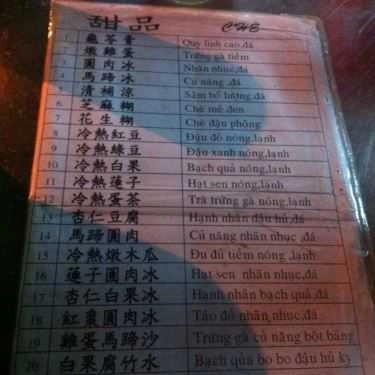 甜品 CHE
1 龜苓膏 Quy linh cao,đá
2 燉雞蛋 Trứng gà tiềm
3 圓肉冰 Nhãn nhục,đá
4 馬蹄冰 Củ năng ,đá
5 清補涼 Sâm bổ lượng,đá
6 芝麻糊 Chè mè đen
7 花生糊 Chè đậu phộng
8 冷熱紅豆 Đậu đỏ nóng,lạnh
9 冷熱綠豆 Đậu xanh nóng,lạnh
10 冷熱白果 Bạch quả nóng,lạnh
11 冷熱蓮子 Hạt sen nóng,lạnh
12 冷熱蛋茶 Trà trứng gà nóng,lạnh
13 杏仁豆腐 Hạnh nhân đậu hủ,đá
14 馬蹄圓肉 Củ năng nhãn nhục ,đá
15 冷熱燉木瓜 Đu đủ tiềm nóng ,lạnh
16 蓮子圓肉冰 Hạt sen nhãn nhục,đá
17 杏仁白果冰 Hạnh nhân bạch quả,đá
18 紅棗圓肉冰 Táo đỏ nhãn nhục,đá
19 雞蛋馬蹄沙 Trứng gà củ năng bột báng
20 白果腐竹水 Bạch quả bo bo đậu hủ ky